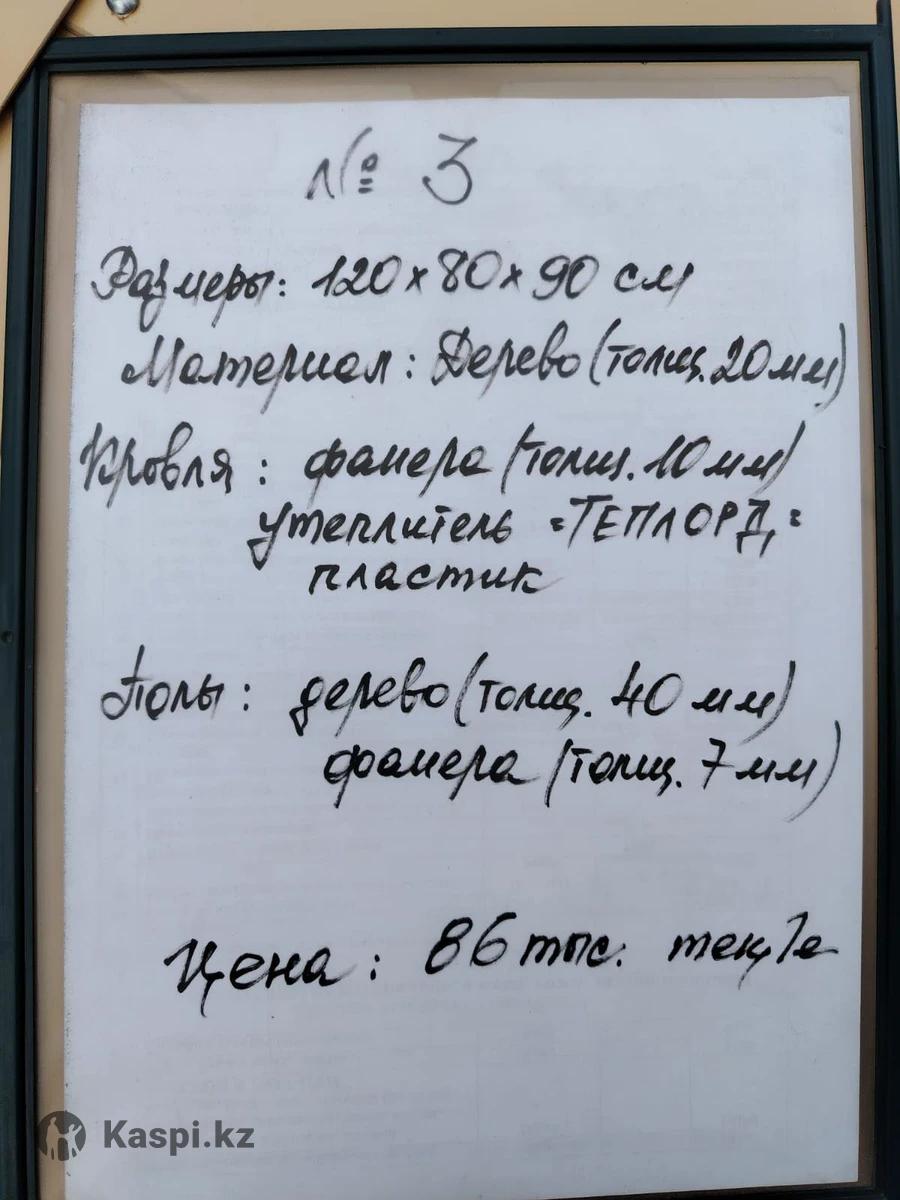 № 3
Размеры: 120 х 80 х 90 см
Материал: Дерево (толщ. 20 мм)
Кровля: фанера (толщ. 10 мм)
утеплитель "ТЕПЛОРД"
пластик
Полы: дерево (толщ. 40 мм)
фанера (толщ. 7 мм)
Цена: 86 тыс. теңге
Kaspi.kz